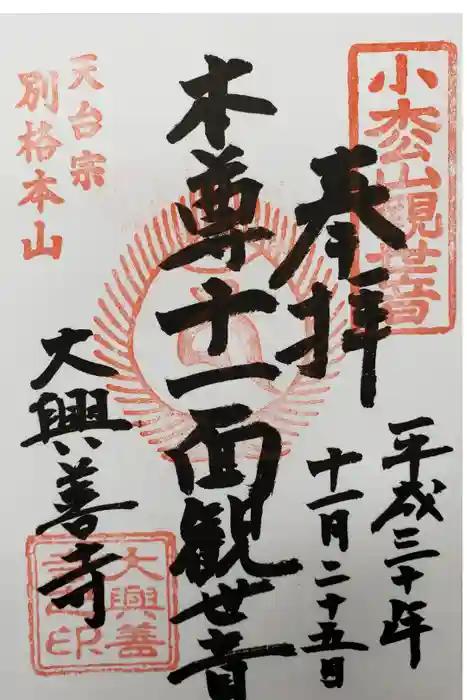 小松山観世音
奉拝
平成三十年
十一月二十五日
本尊十一面観世音
天台宗
別格本山
大興善寺
大興善
寺□印